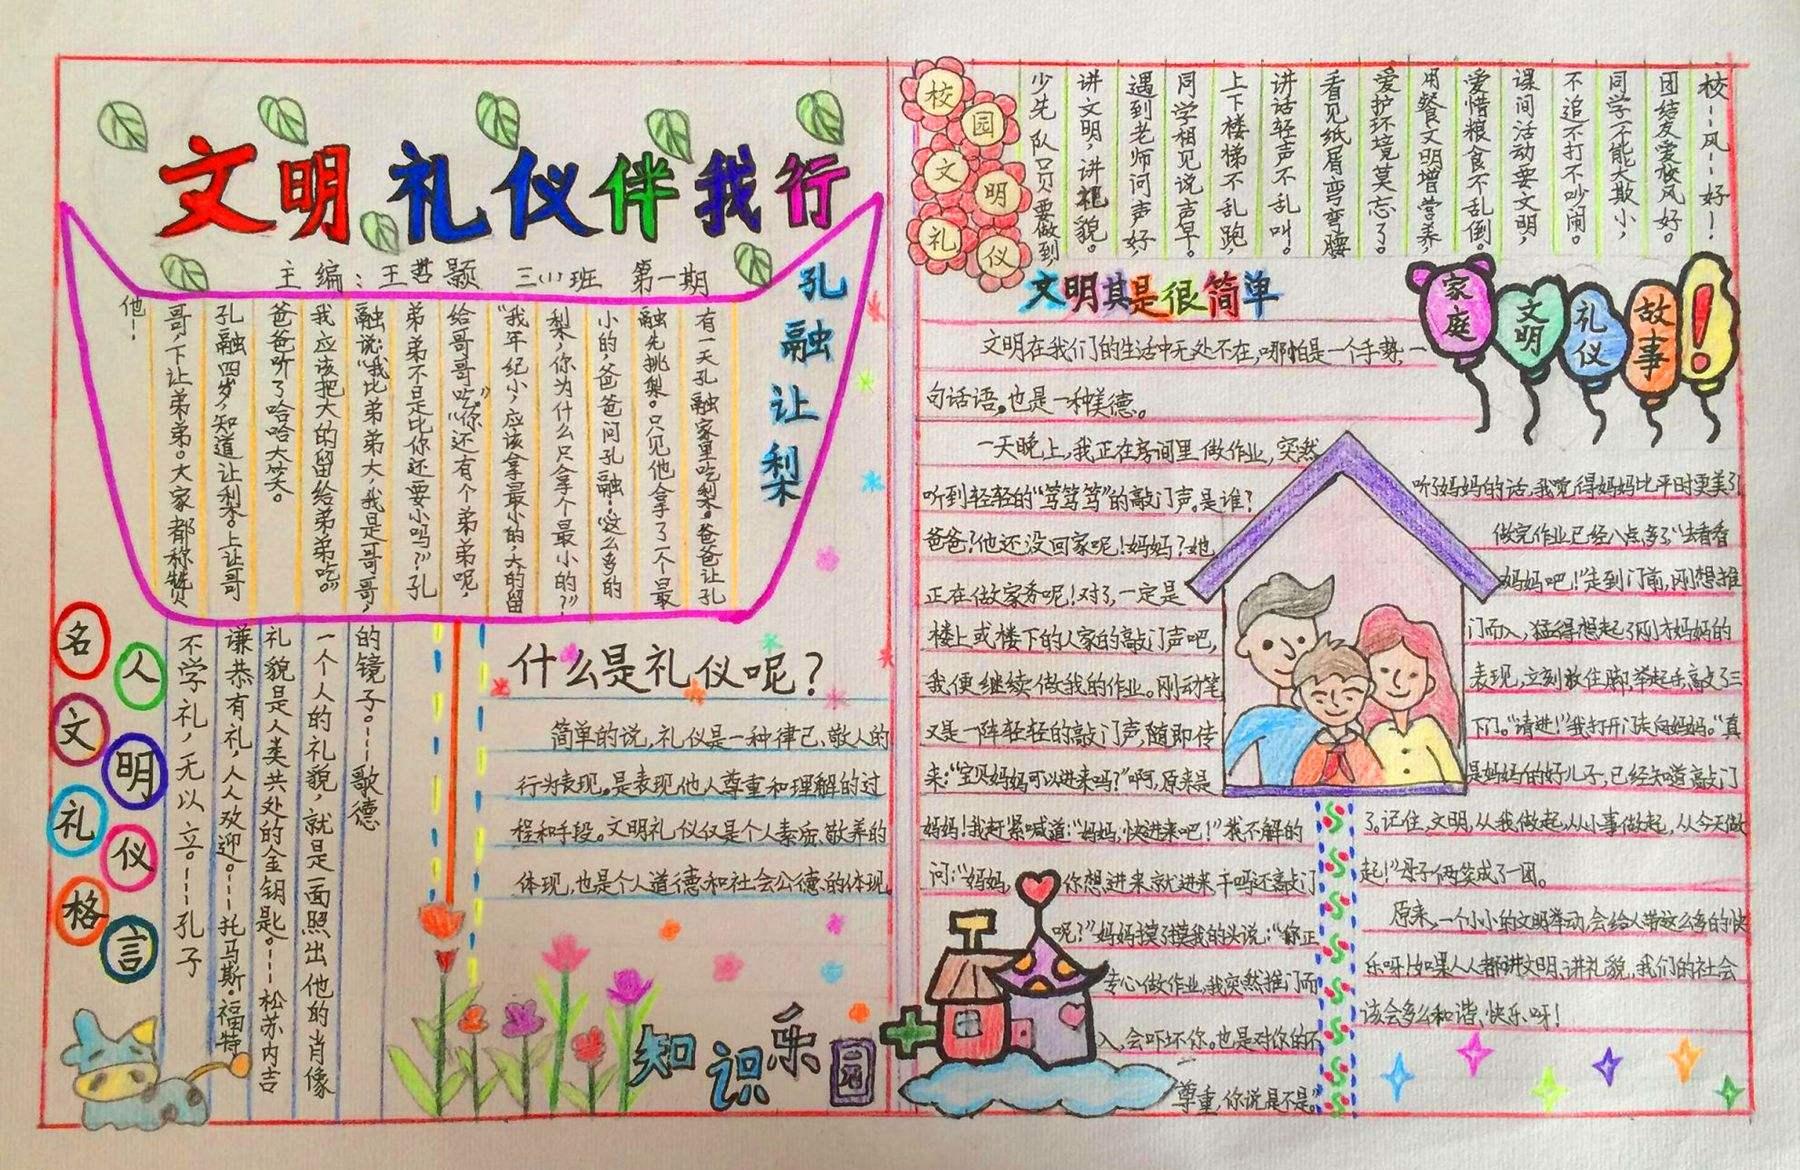 文明礼仪伴我行
主编：王哲颢 三(1)班 第一期
孔融让梨
有一天孔融家里吃梨。爸爸让孔
融先挑梨。只见他拿了一个最
小的，爸爸问孔融：“这么多的
梨，你为什么只拿个最小的？”
“我年纪小，应该拿最小的，大的留
给哥哥吃。”“你还有个弟弟呢，
弟弟不是比你还要小吗？”孔
融说：“我比弟弟大，我是哥哥，
我应该把大的留给弟弟吃。”
爸爸听了哈哈大笑。
孔融四岁，知道让梨。上让哥
哥，下让弟弟。大家都称赞
他！
名人文明礼仪格言
不学礼，无以立。——孔子
谦恭有礼，人人欢迎。——托马斯·福特
礼貌是人类共处的金钥匙。——松苏内吉
一个人的礼貌，就是一面照出他的肖像
的镜子。——歌德
什么是礼仪呢？
简单的说，礼仪是一种律己、敬人的
行为表现。是表现他人尊重和理解的过
程和手段。文明礼仪仅是个人素质、敬养的
体现，也是个人道德和社会公德、的体现。
知识乐园
校园文明礼仪
校——风——好——！
团结友爱校风好。
同学不能大欺小，
不追不打不吵闹。
课间活动要文明，
爱惜粮食不乱倒。
用餐文明增营养
爱护环境莫忘了。
看见纸屑弯弯腰
讲话轻声不乱叫。
上下楼梯不乱跑，
同学相见说声早。
遇到老师问声好，
讲文明，讲礼貌。
少先队员要做到，
文明其是很简单
家庭文明礼仪故事！
文明在我们的生活中无处不在，哪怕是一个手势，一
句话语。也是一种美德。
一天晚上，我正在房间里做作业，突然
听到轻轻的“笃笃笃”的敲门声。是谁？
爸爸？他还没回家呢！妈妈？她
正在做家务呢！对了，一定是
楼上或楼下的人家的敲门声吧，
我便继续做我的作业。刚动笔
又是一阵轻轻的敲门声，随即传
来：“宝贝妈妈可以进来吗？”啊，原来是
妈妈！我赶紧喊道：“妈妈，快进来吧！”我不解的
问：“妈妈，你想进来就进来干吗还敲门
呢？”妈妈摸了摸我的头说：“你正
专心做作业，我突然推门而
入，会吓坏你。也是对你的不
尊重，你说是不是。”
听了妈妈的话，我觉得妈妈比平时更美了
做完作业已经八点多了“去看看
妈妈吧！”走到门前，刚想推
门而入，猛得想起了刚才妈妈的
表现，立刻放住脚，举起手，敲了三
下门。“请进！”我打开门，走向妈妈。“真
是妈妈的好儿子，已经知道敲门
了。记住，文明，从我做起，从小事做起，从今天做
起！”母子俩笑成了一团。
原来，一个小小的文明举动，会给人带这么多的快
乐呀！如果人人都讲文明、讲礼貌，我们的社会
该会多么和谐、快乐、呀！